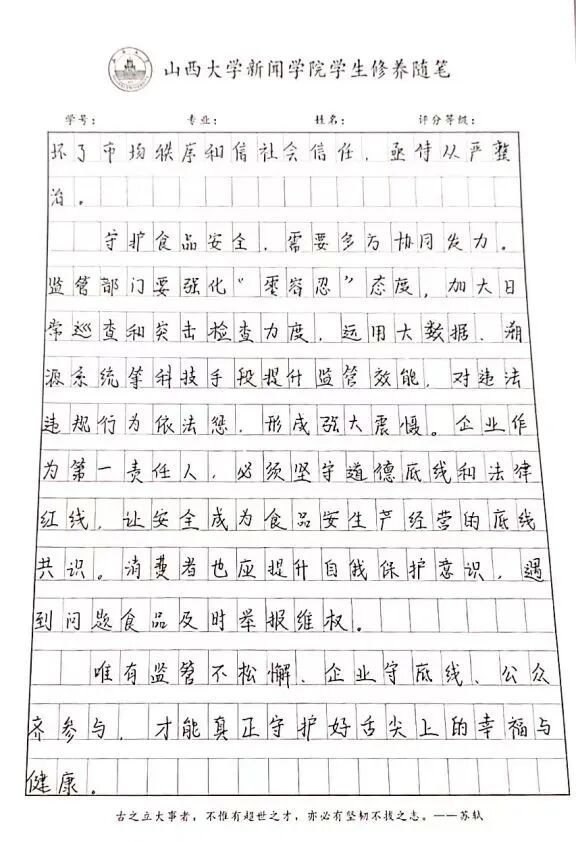 山西大学新闻学院学生修养随笔
学号： 专业： 姓名： 评分等级：
坏了市场秩序和信社会信任，亟待从严整
治。
守护食品安全，需要多方协同发力。
监管部门要强化“零容忍”态度，加大日
常巡查和突击检查力度，运用大数据、溯
源系统等科技手段提升监管效能，对违法
违规行为依法惩，形成强大震慑。企业作
为第一责任人，必须坚守道德底线和法律
红线，让安全成为食品安生产经营的底线
共识。消费者也应提升自我保护意识，遇
到问题食品及时举报维权。
唯有监管不松懈、企业守底线、公众
齐参与，才能真正守护好舌尖上的幸福与
健康。
古之立大事者，不惟有超世之才，亦必有坚韧不拔之志。——苏轼